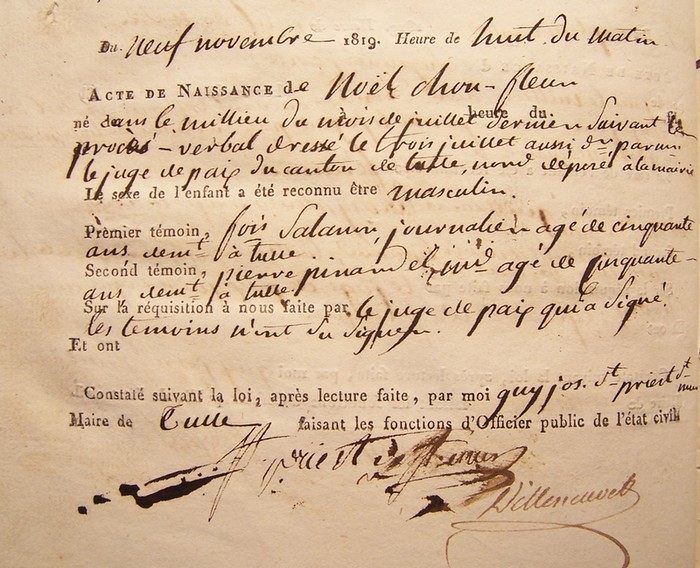 Du neuf novembre 1819. Heure de huit du matin
ACTE DE NAISSANCE de Noël chou-fleur
né dans le millieu du mois de juillet dernier suivant le
procès-verbal dressé le trois juillet aussi dr par un
le juge de paix du canton de tulle, nord déposé à la mairie
Le sexe de l'enfant a été reconnu être masculin.
Premier témoin, fois Salanon, journalier agé de cinquante
ans demt à tulle.
Second témoin, pierre pinardel, md agé de cinquante-
ans demt à tulle
Sur la réquisition à nous faite par le juge de paix qui a signé.
les temoins n'ont su signer.
Et ont
Constaté suivant la loi, après lecture faite, par moi guy jos. St priest St mur
Maire de Tulle faisant les fonctions d'Officier public de l'état civil
St priest St mur
Villeneuve